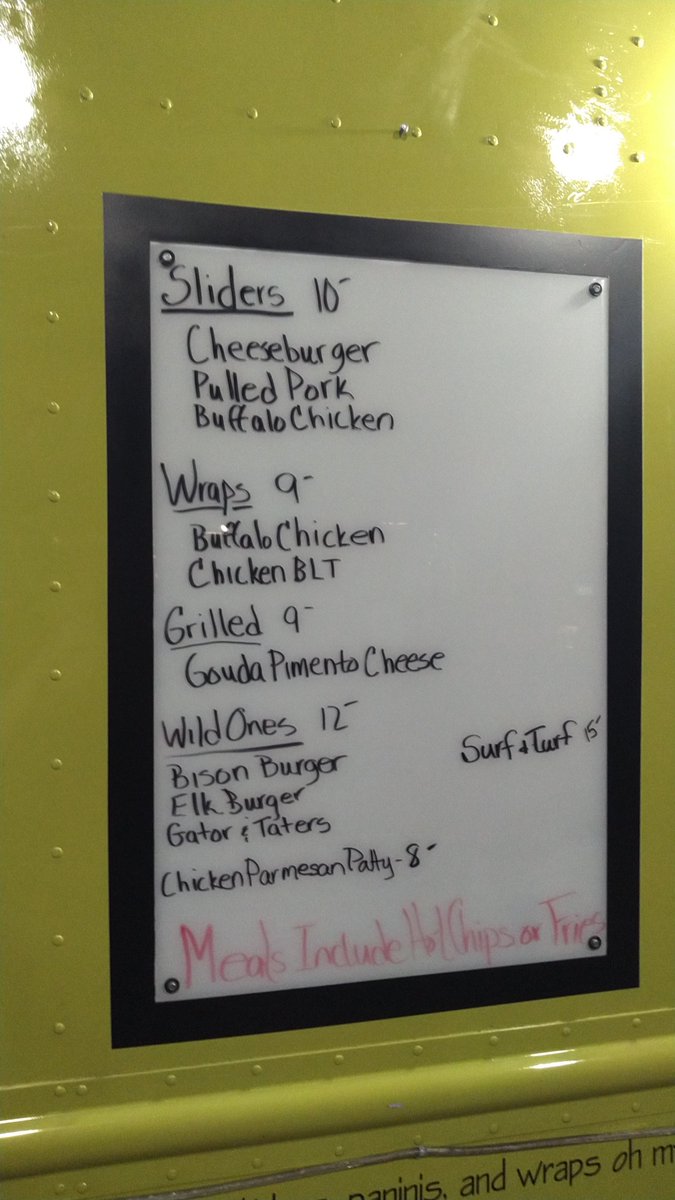 Sliders 10-
Cheeseburger
Pulled Pork
Buffalo Chicken
Wraps 9-
Buffalo Chicken
Chicken BLT
Grilled 9-
Gouda Pimento Cheese
Wild Ones 12-
Surf & Turf 15-
Bison Burger
Elk Burger
Gator & Taters
Chicken Parmesan Patty - 8-
Meals Include Hot Chips or Fries
paninis, and wraps oh m